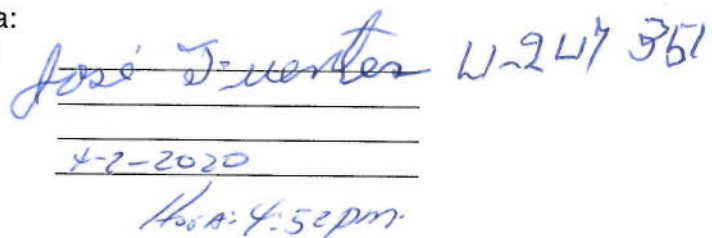 a:
José Fuentes 4-247 351
4-2-2020
Hora: 4:52 pm.